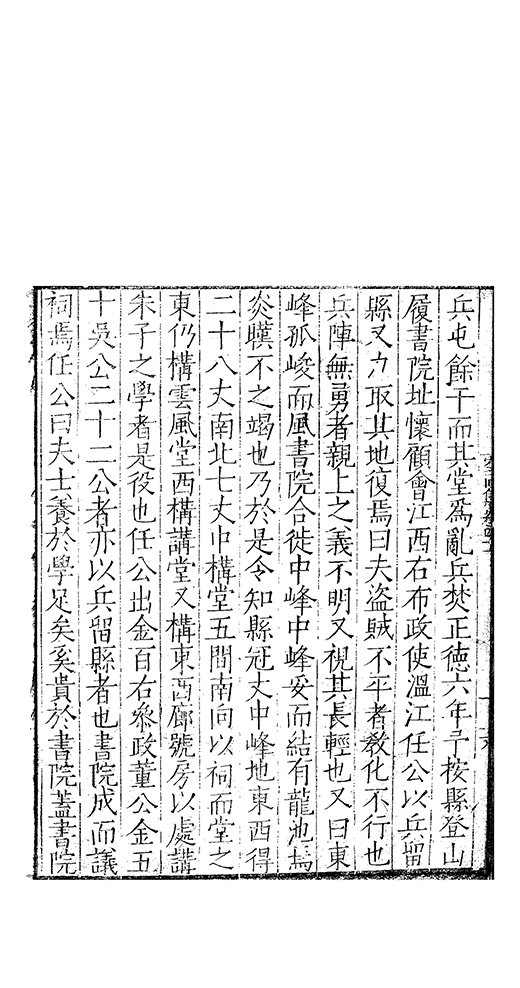 兵屯餘干而其堂爲亂兵焚正德六年予按縣登山
履書院址懷顧會江西右布政使溫江任公以兵留
縣又力取其地復焉曰夫盜賊不平者敎化不行也
兵陣無勇者親上之義不明又視其長輕也又曰東
峰孤峻而風書院合徙中峰中峰妥而結有龍池焉
炎暵不之竭也乃於是令知縣冠丈中峰地東西得
二十八丈南北七丈中構堂五間南向以祠而堂之
東仍構雲風堂西構講堂又構東西廊號房以處講
朱子之學者是役也任公出金百右叅政董公金五
十吳公二十二公者亦以兵留縣者也書院成而議
祠焉任公曰夫士養於學足矣奚貴於書院蓋書院